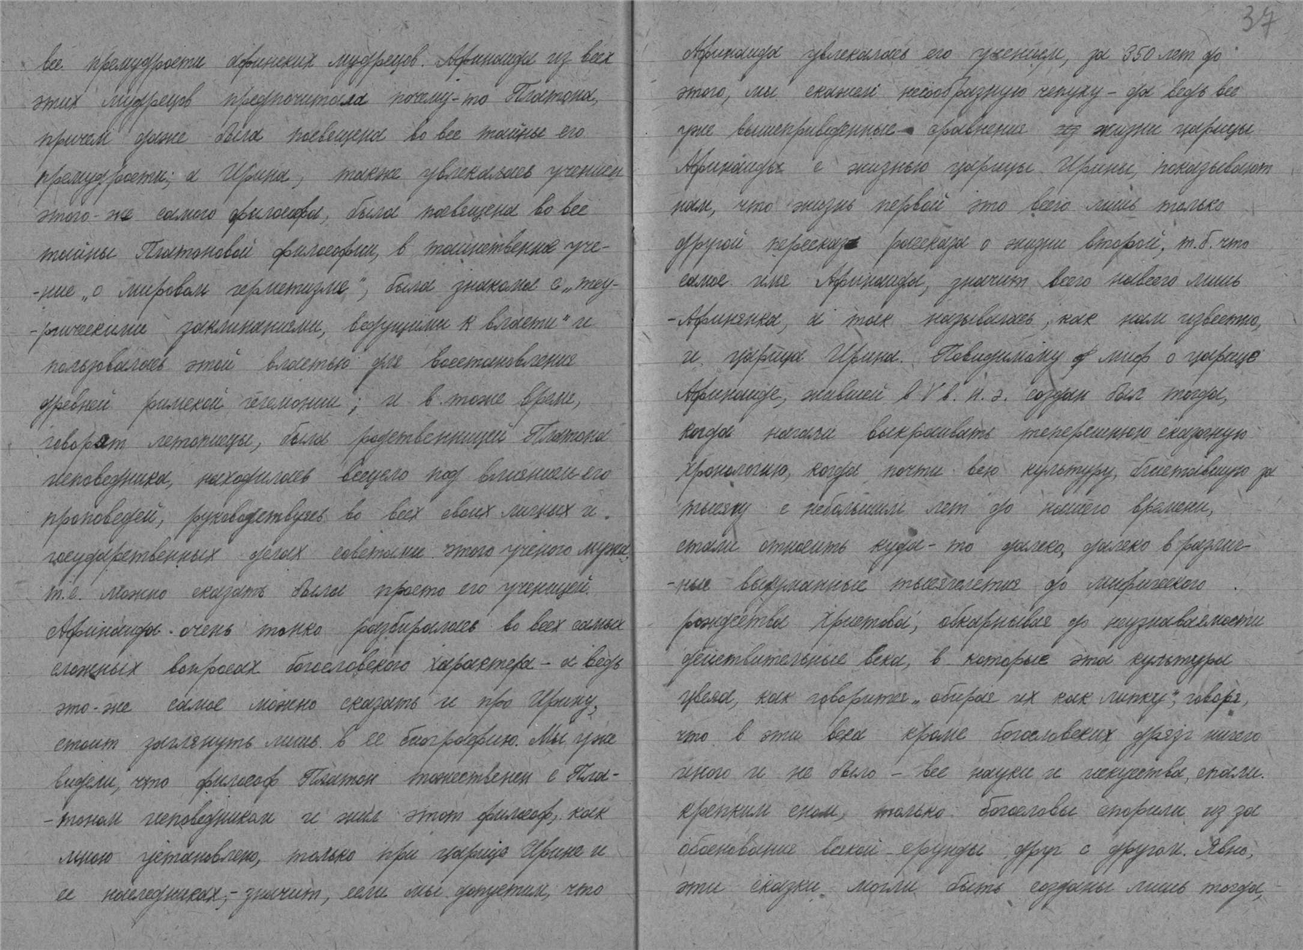 все премудрости афинских мудрецов. Афинаида из всех
этих мудрецов предпочитала почему-то Платона,
причем даже была посвещена во все тайны его
премудрости; а Ирина, также увлекалась учением
этого-же самого философа, была посвещена во все
тайны Платоновой философии, в таинственное уче-
-ние „о мировом герметизме", была знакома с „теу-
-ргическими заклинаниями, ведущими к власти" и
пользовалась этой властью для восстановления
древней римской гегемонии; и в тоже время,
говорят летописцы, была родственницей Платона
исповедника, находилась всецело под влиянием его
проповедей, руководствуясь во всех своих личных и
государственных делах советами этого ученого мужа,
т.е. можно сказать была просто его ученицей.
Афинаида очень тонко разбиралась во всех самых
сложных вопросах богословского характера – а ведь
это-же самое можно сказать и про Ирину,
стоит заглянуть лишь в ее биографию. Мы уже
видели, что философ Платон тожественен с Пла-
-тоном исповедником и жил этот философ, как
мною установлено, только при царице Ирине и
ее наследниках, – значит, если мы допустим, что
37
Афинаида увлекалась его учением, за 350 лет до
этого, мы скажем несообразную чепуху – да ведь все
уже вышеприведенные сравнение жизни царицы
Афинаиды с жизнью царицы Ирины, показывают
нам, что жизнь первой это всего лишь только
другой пересказ рассказа о жизни второй, т.б. что
самое имя Афинаида, значит всего навсего лишь
-Афинянка, а так называлась, как нам известно,
и царица Ирина. Повидимому миф о царице
Афинаиде, жившей в V в. н. э. создан был тогда,
когда начали выкраивать теперешнюю сказочную
хронологию, когда почти всю культуру, блиставшую за
тысячу с небольшим лет до нашего времени,
стали относить куда-то далеко, далеко в различ-
-ные выдуманные тысячелетия до мифического
рождества Христова, обкарнывая до неузнаваемости
действительные века, в которые эта культура
цвела, как говорится „обирая их как липку", говоря,
что в эти века кроме богословских дрязг ничего
иного и не было – все науки и искуства, спали
крепким сном, только богословы спорили из за
обоснование всякой ерунды друг с другом. Явно,
эти сказки могли быть созданы лишь тогда,